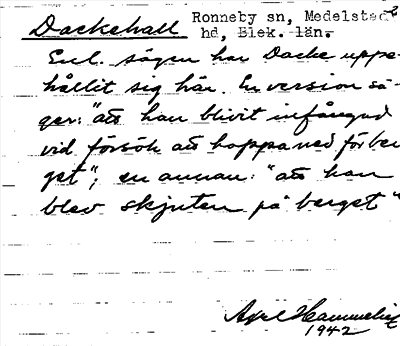 Dackehall Ronneby sn, Medelstads
hd, Blek. län.
Enl. sägen har Dacke uppe-
hållit sig här. En version sä-
ger: "att han blivit infångad
vid försök att hoppa ned för ber-
get"; en annan: "att han
blev skjuten på berget"
Axel Hammelin
1942